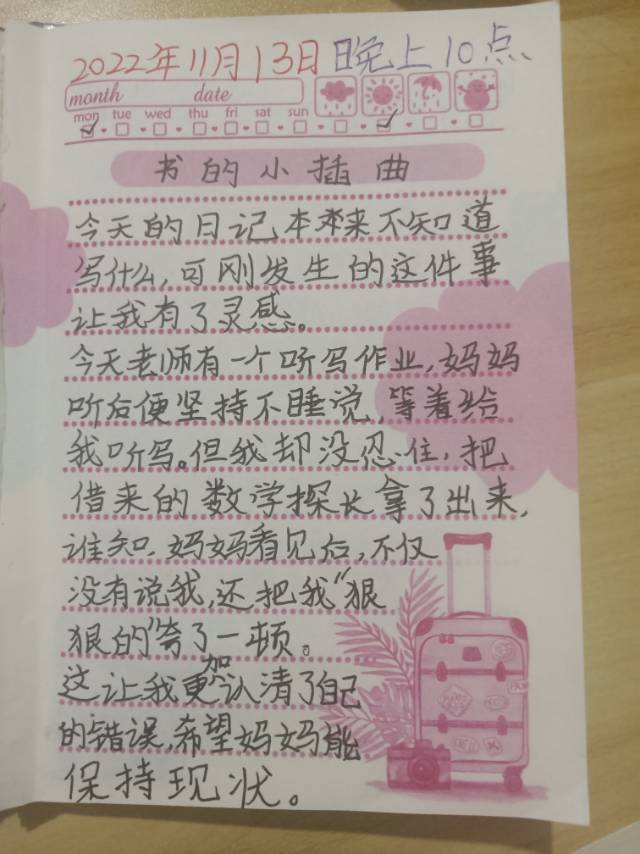 2022年11月13日晚上10点
month date
mon tue wed thu fri sat sun
书的小插曲
今天的日记本来不知道
写什么,可刚发生的这件事
让我有了灵感。
今天老师有一个听写作业,妈妈
听后便坚持不睡觉,等着给
我听写。但我却没忍住,把
借来的数学探长拿了出来,
谁知,妈妈看见后,不仅
没有说我,还把我“狠
狠的”夸了一顿。
这让我更加认清了自己
的错误,希望妈妈能
保持现状。